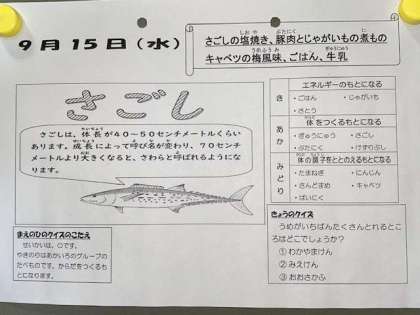 9月15日(水)
さごしの塩焼き、豚肉とじゃがいもの煮もの
キャベツの梅風味、ごはん、牛乳
さごし
さごしは、体長が40～50センチメートルくらい
あります。成長によって呼び名が変わり、70センチ
メートルより大きくなると、さわらと呼ばれるようにな
ります。
き
エネルギーのもとになる
・ごはん ・じゃがいも
・さとう
あか
体をつくるもとになる
・ぎゅうにゅう ・さごし
・ぶたにく ・けずりぶし
みどり
体の調子をととのえるもとになる
・たまねぎ ・にんじん
・さんどまめ ・キャベツ
・ばいにく
まえのひのクイズのこたえ
せいかいは、○です。
やきのりはあかいろのグループの
たべものです。からだをつくるも
とになります。
きょうのクイズ
うめがいちばんたくさんとれるとこ
ろはどこでしょうか？
①わかやまけん
②みえけん
③おおさかふ